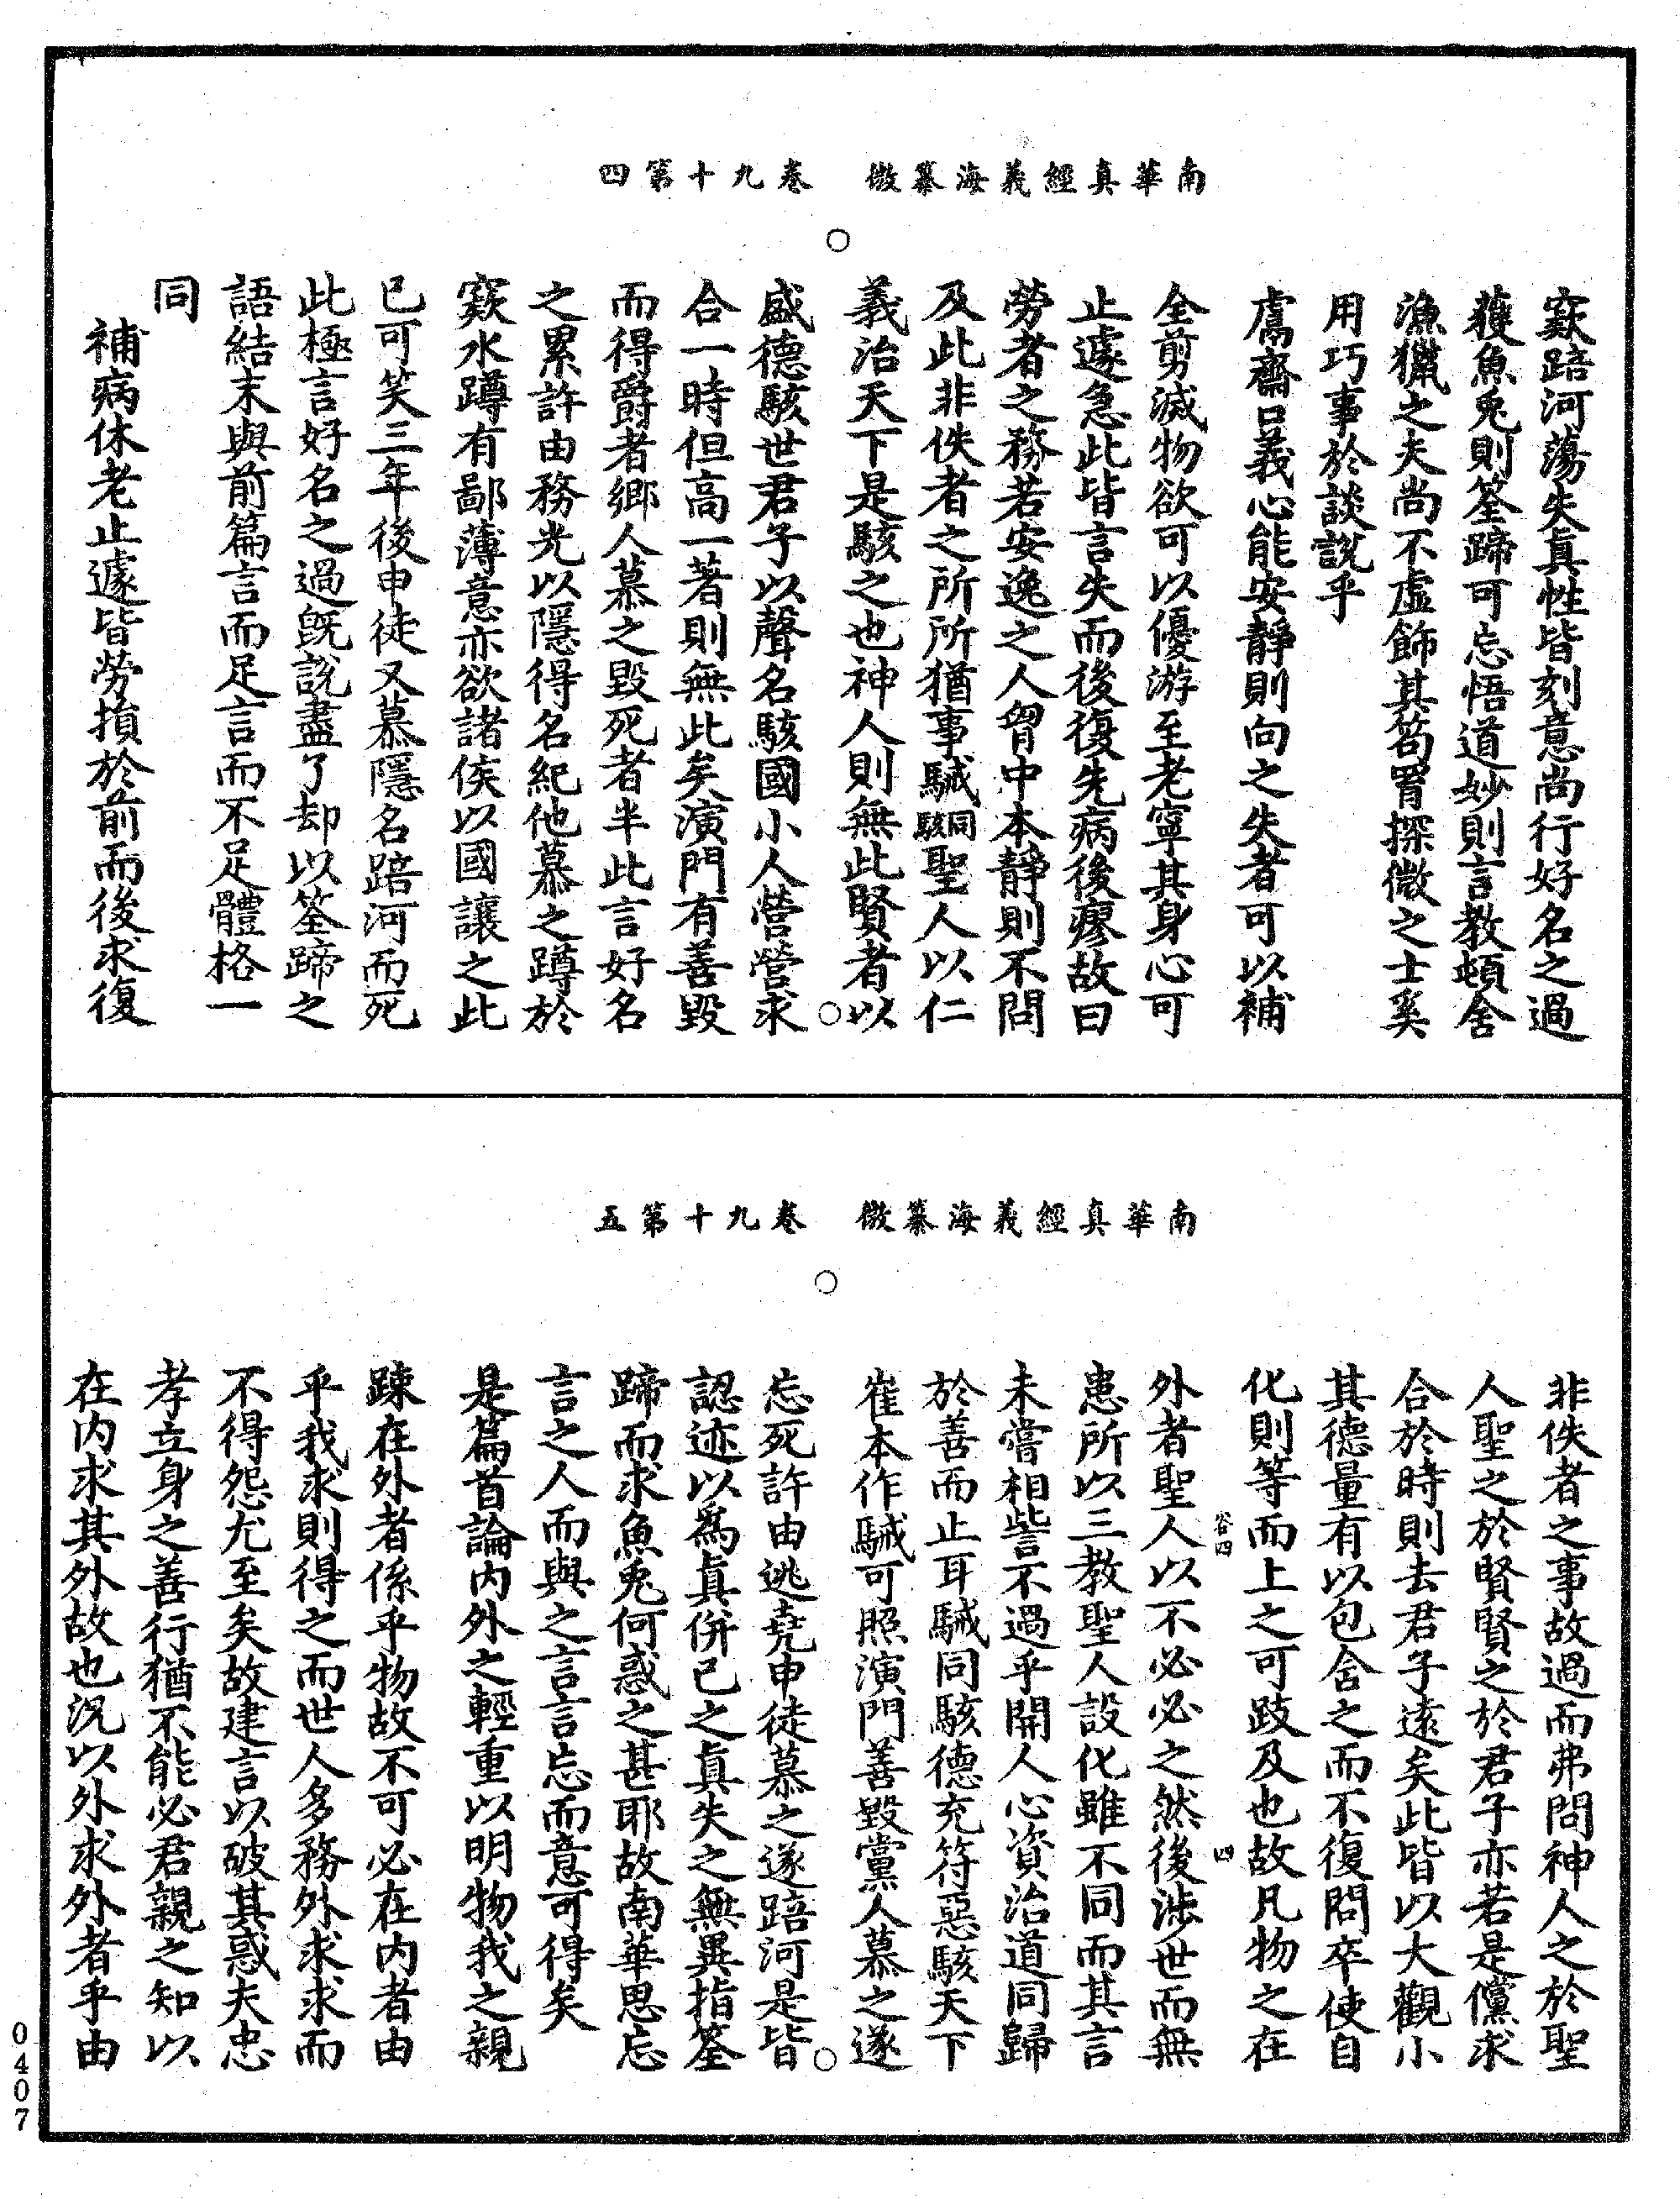 南華真經義海纂微　卷九十第四
窾踣河蕩失真性皆刻意尚行好名之過
獲魚兎則筌蹄可忘悟道妙則言教頓舍
漁獵之夫尚不虛飾其笱罥探微之士奚
用巧事於談說乎
鬳齋口義心能安靜則向之失者可以補
全剪滅物欲可以優游至老寧其身心可
止遽急此皆言失而後復先病後瘳故曰
勞者之務若安逸之人胷中本靜則不問
及此非佚者之所所猶事駴駭同聖人以仁
義治天下是駭之也神人則無此賢者以
盛德駭世君子以聲名駭國小人營營求
合一時但高一著則無此矣演門有善毀
而得爵者鄉人慕之毀死者半此言好名
之累許由務光以隱得名紀他慕之蹲於
窾水蹲有鄙薄意亦欲諸侯以國讓之此
已可笑三年後申徒又慕隱名踣河而死
此極言好名之過旣說盡了却以筌蹄之
語結末與前篇言而足言而不足體格一
同
補病休老止遽皆勞損於前而後求復
南華真經義海纂微　卷九十第五
非佚者之事故過而弗問神人之於聖
人聖之於賢賢之於君子亦若是儻求
合於時則去君子遠矣此皆以大觀小
其德量有以包舍之而不復問卒使自
化則等而上之可跂及也故凡物之在
外者聖人以不必必之然後涉世而無
患所以三教聖人設化雖不同而其言
未嘗相訾不過乎開人心資治道同歸
於善而止耳駴同駭德充符惡駭天下
崔本作駴可照演門善毀黨人慕之遂
忘死許由逃堯申徒慕之遂踣河是皆
認迹以爲真併己之真失之無異指筌
蹄而求魚兎何惑之甚耶故南華思忘
言之人而與之言言忘而意可得矣
是篇首論內外之輕重以明物我之親
踈在外者係乎物故不可必在內者由
乎我求則得之而世人多務外求求而
不得怨尤至矣故建言以破其惑夫忠
孝立身之善行猶不能必君親之知以
在內求其外故也況以外求外者乎由
四
0407